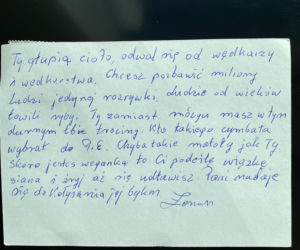 Ty głupia cioto, odwal się od wędkarzy
i wędkarstwa. Chcesz pozbawić miliony
ludzi jedynej rozrywki. Ludzie od wieków
łowili ryby. Ty zamiast mózgu masz w tym
durnym łbie trociny. Kto takiego cymbała
wybrał do P.E. Chyba takie matoły jak Ty
Skoro jesteś weganką to Ci podeślę wiązkę
siana i żryj aż się udławisz. Pani nadaje
się do kołysania jej bykom
Zenon